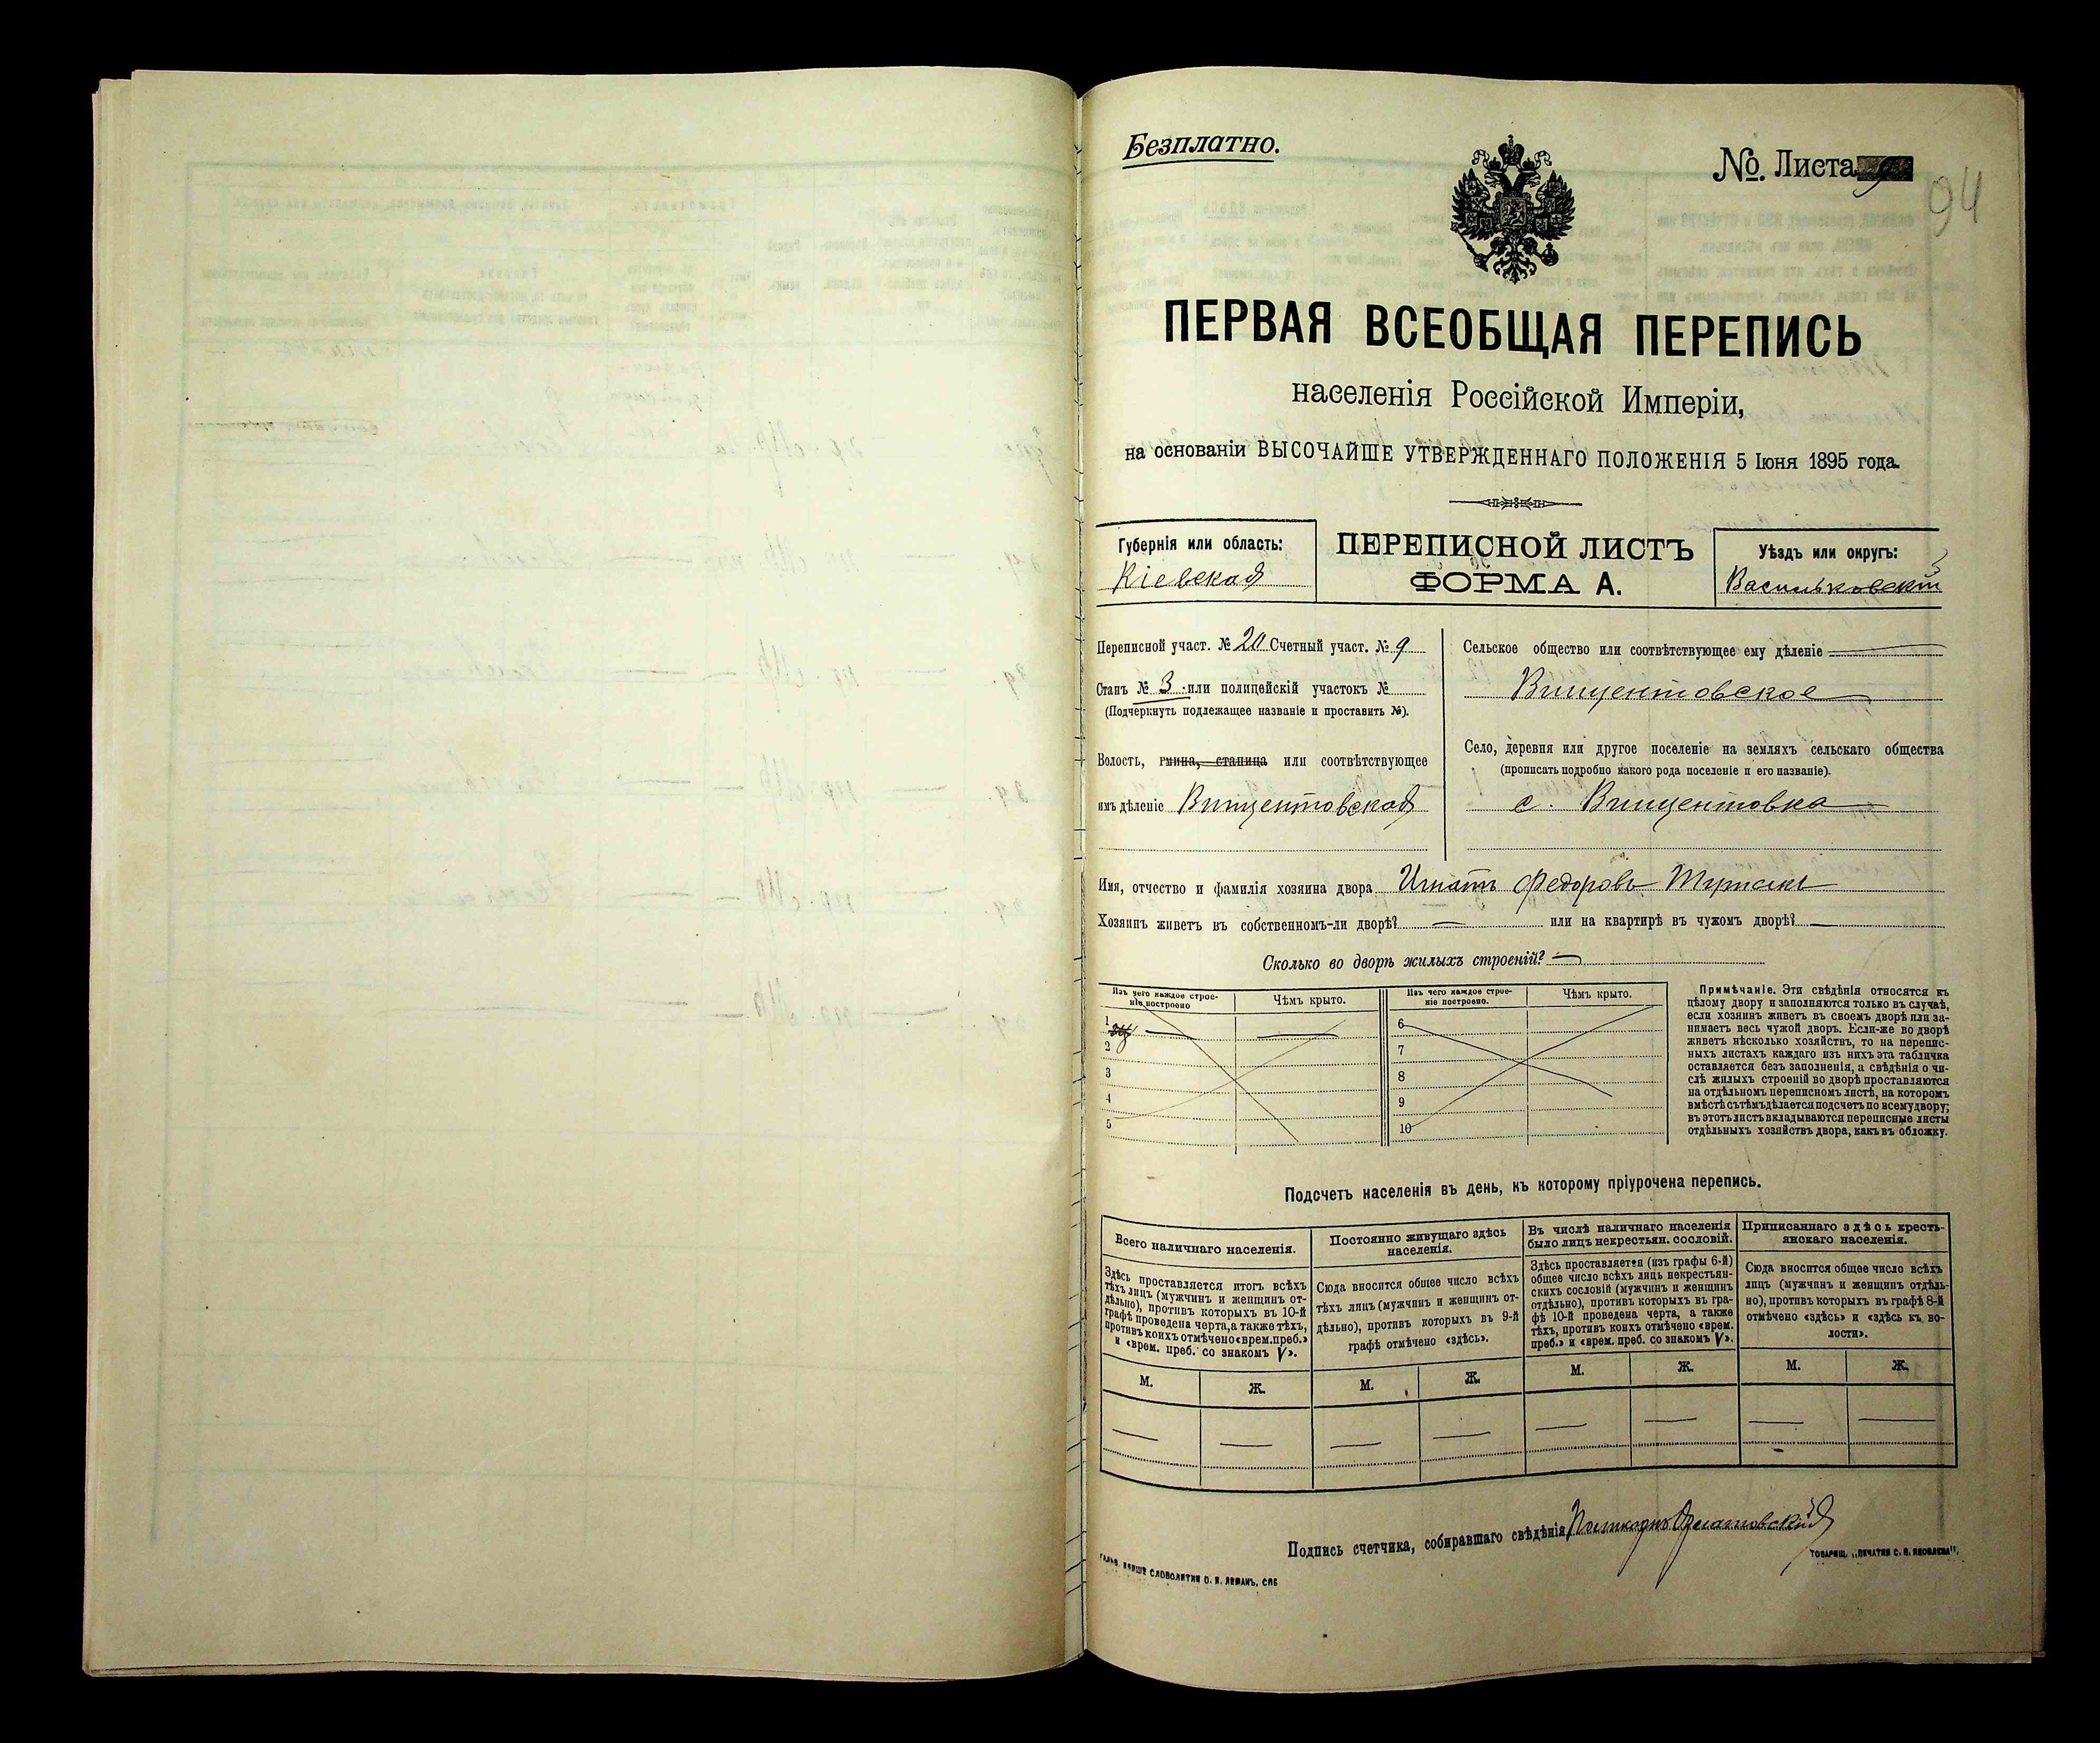 Безплатно.
№. Листа 9
94
ПЕРВАЯ ВСЕОБЩАЯ ПЕРЕПИСЬ
населенія Россійской Имперіи,
на основаніи ВЫСОЧАЙШЕ УТВЕРЖДЕННАГО ПОЛОЖЕНІЯ 5 Іюня 1895 года.
Губернія или область:
Кіевская
ПЕРЕПИСНОЙ ЛИСТЪ
ФОРМА А.
Уѣздъ или округъ:
Васильковскій
Переписной участ. № 20 Счетный участ. № 9
Станъ № 3 или полицейскій участокъ №
(Подчеркнуть подлежащее названіе и проставить №).
Волость, гмина, станица или соотвѣтствующее
имъ дѣленіе Винцентовская
Сельское общество или соотвѣтствующее ему дѣленіе
Винцентовское
Село, деревня или другое поселеніе на земляхъ сельскаго общества
(прописать подробно какого рода поселеніе и его названіе).
с. Винцентовка
Имя, отчество и фамилія хозяина двора Игнатъ Федоровъ
Хозяинъ живетъ въ собственномъ-ли дворѣ? — или на квартирѣ въ чужомъ дворѣ? —
Сколько во дворѣ жилыхъ строеній? —
Изъ чего каждое строе-
ніе построено
Чѣмъ крыто.
Изъ чего каждое строе-
ніе построено.
Чѣмъ крыто.
1
2
3
4
5
6
7
8
9
10
Примѣчаніе. Эти свѣдѣнія относятся къ
цѣлому двору и заполняются только въ случаѣ,
если хозяинъ живетъ въ своемъ дворѣ или за-
нимаетъ весь чужой дворъ. Если-же во дворѣ
живетъ нѣсколько хозяйствъ, то на перепис-
ныхъ листахъ каждаго изъ нихъ эта табличка
оставляется безъ заполненія, а свѣдѣнія о чи-
слѣ жилыхъ строеній во дворѣ проставляются
на отдѣльномъ переписномъ листѣ, на которомъ
вмѣстѣ съ тѣмъ дѣлается подсчетъ по всему двору;
въ этотъ листъ вкладываются переписные листы
отдѣльныхъ хозяйствъ двора, какъ въ обложку.
Подсчетъ населенія въ день, къ которому пріурочена перепись.
Всего наличнаго населенія.
Здѣсь проставляется итогъ всѣхъ
тѣхъ лицъ (мужчинъ и женщинъ от-
дѣльно), противъ которыхъ въ 10-й
графѣ проведена черта, а также тѣхъ,
противъ коихъ отмѣчено «врем. преб.»
и «врем. преб. со знакомъ V».
М. Ж.
Постоянно живущаго здѣсь
населенія.
Сюда вносится общее число всѣхъ
тѣхъ лицъ (мужчинъ и женщинъ от-
дѣльно), противъ которыхъ въ 9-й
графѣ отмѣчено «здѣсь».
М. Ж.
Въ числѣ наличнаго населенія
было лицъ некрестьян. сословій.
Здѣсь проставляется (изъ графы 6-й)
общее число всѣхъ лицъ некрестьян-
скихъ сословій (мужчинъ и женщинъ
отдѣльно), противъ которыхъ въ гра-
фѣ 10-й проведена черта, а также
тѣхъ, противъ коихъ отмѣчено «врем.
преб.» и «врем. преб. со знакомъ V».
М. Ж.
Приписаннаго здѣсь кресть-
янскаго населенія.
Сюда вносится общее число всѣхъ
лицъ (мужчинъ и женщинъ отдѣль-
но), противъ которыхъ въ графѣ 8-й
отмѣчено «здѣсь» и «здѣсь къ во-
лости».
М. Ж.
Подпись счетчика, собиравшаго свѣдѣнія
СЛОВОЛИТНИ О. И. ЛЕМАНЪ, СПБ
ТОВАРИЩ. „ПЕЧАТНЯ С. П. ЯКОВЛЕВА".